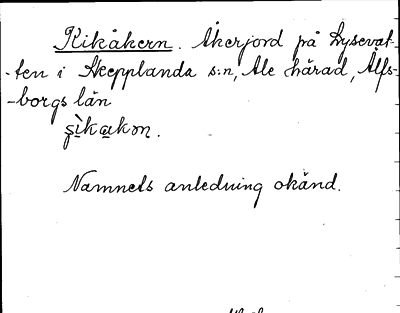 Kikåkern. Åkerjord på Lysevat-
-ten i Skepplanda s:n, Ale härad, Älfs-
-borgs län
Namnets anledning okänd.